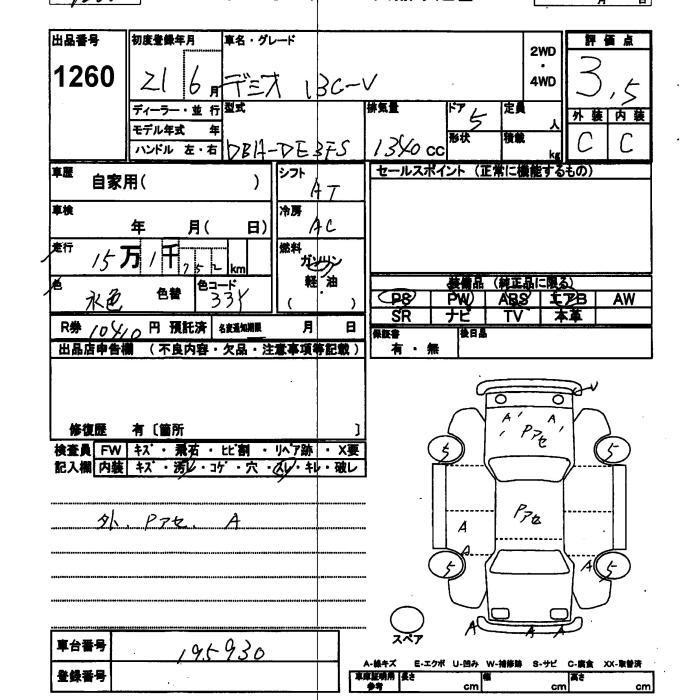 出品番号
1260
初度登録年月
21 6月
車名・グレード
デミオ 13C-V
2WD
・
4WD
評価点
3.5
外装 内装
C C
ディーラー・並行
モデル年式 年
ハンドル 左・右
型式
DBA-DE3FS
排気量
1340 CC
ドア
5
形状
定員
人
積載
kg
車歴
自家用( )
車検
年 月( 日)
走行
15万1千752 km
色
水色 色替
色コード
33Y
シフト
AT
冷房
AC
燃料
ガソリン
軽・油
( )
セールスポイント (正常に機能するもの)
装備品 (純正品に限る)
PS PW ABS エアB AW
SR ナビ TV 本革
R券 10410 円 預託済 名変通知期限 月 日
保証書
有・無
後日品
出品店申告欄 (不良内容・欠品・注意事項等記載)
修復歴 有〔箇所 〕
検査員
記入欄
FW キズ・飛石・ヒビ割・リペア跡・X要
内装 キズ・汚レ・コゲ・穴・スレ・キレ・破レ
外. Pアセ. A
V
A' A'
Pアセ
5 5
Pアセ
A
A
A
5 5
A A A
スペア
車台番号
195930
登録番号
A-線キズ E-エクボ U-凹み W-補修跡 S-サビ C-腐食 XX-取替済
車庫証明用
参考
長さ cm 幅 cm 高さ cm